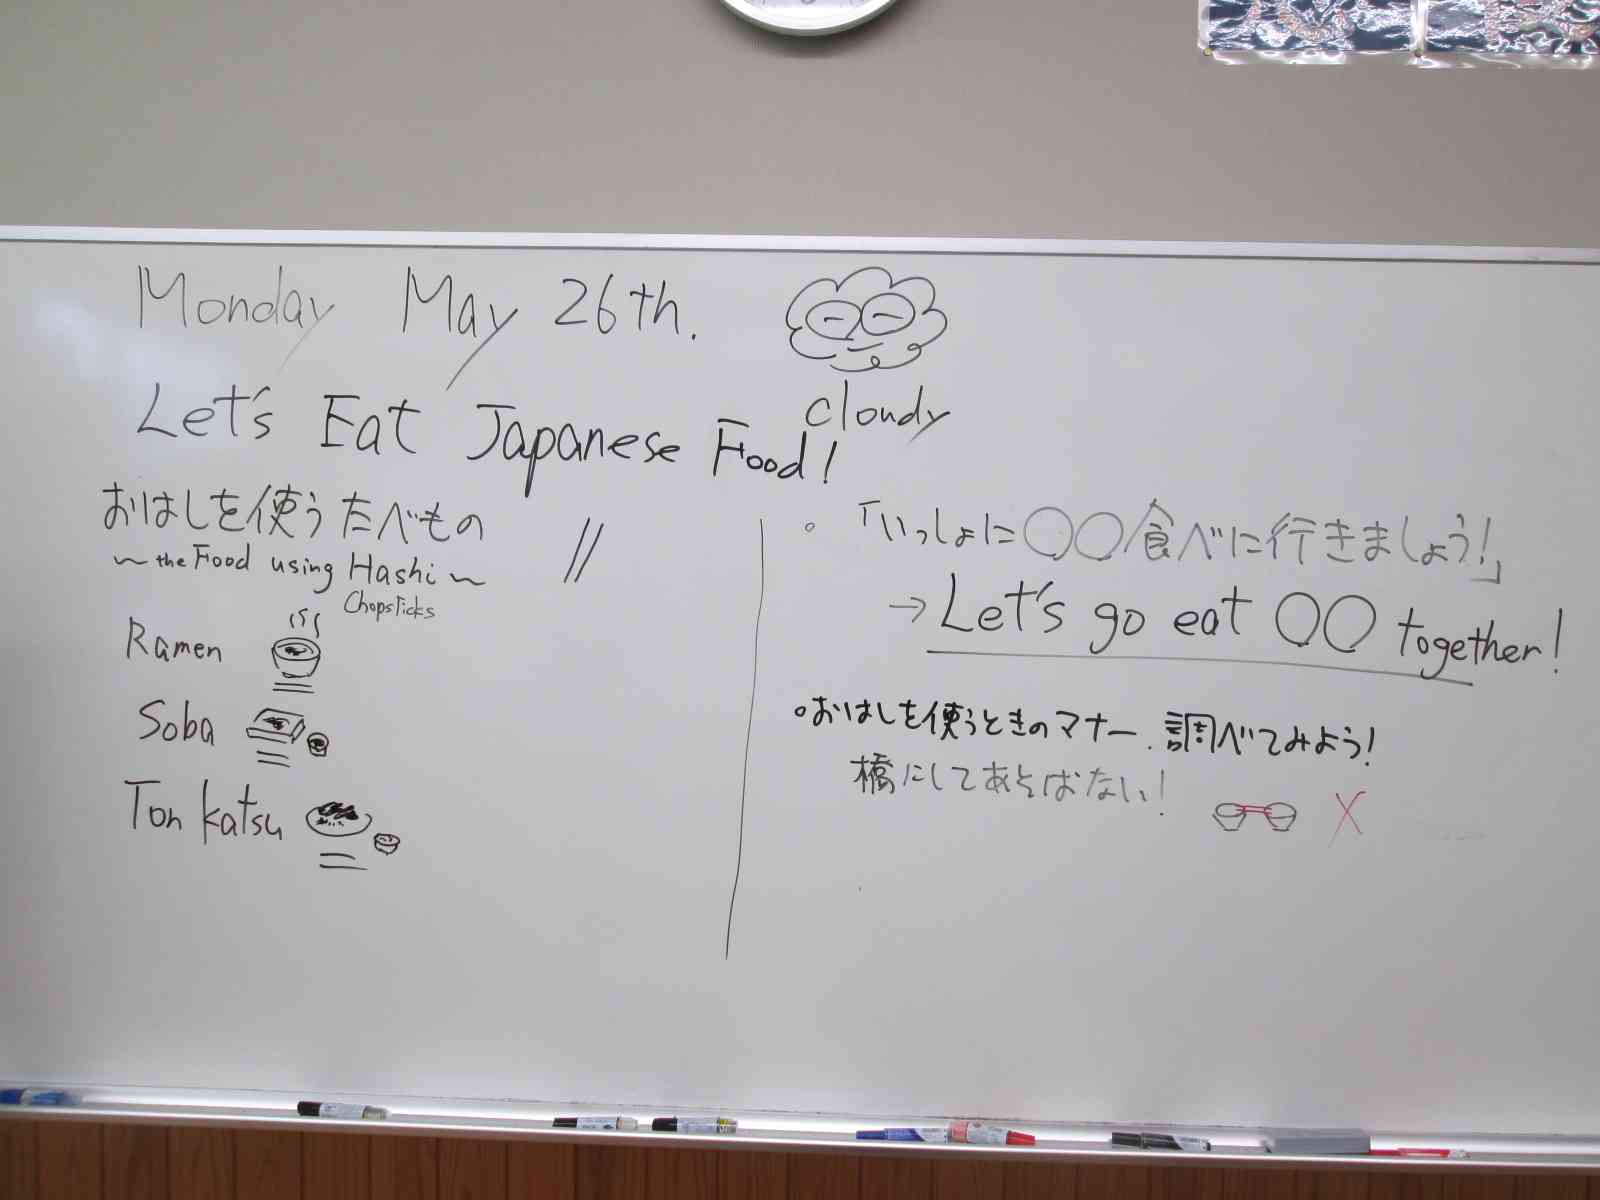 Monday May 26th.
cloudy
Let's Eat Japanese Food!
おはしを使うたべもの
〜the Food using Hashi〜
Chopsticks
Ramen
Soba
Ton katsu
。「いっしょに〇〇食べに行きましょう!」
→Let's go eat 〇〇 together!
。おはしを使うときのマナー、調べてみよう!
橋にしてあそばない!
X